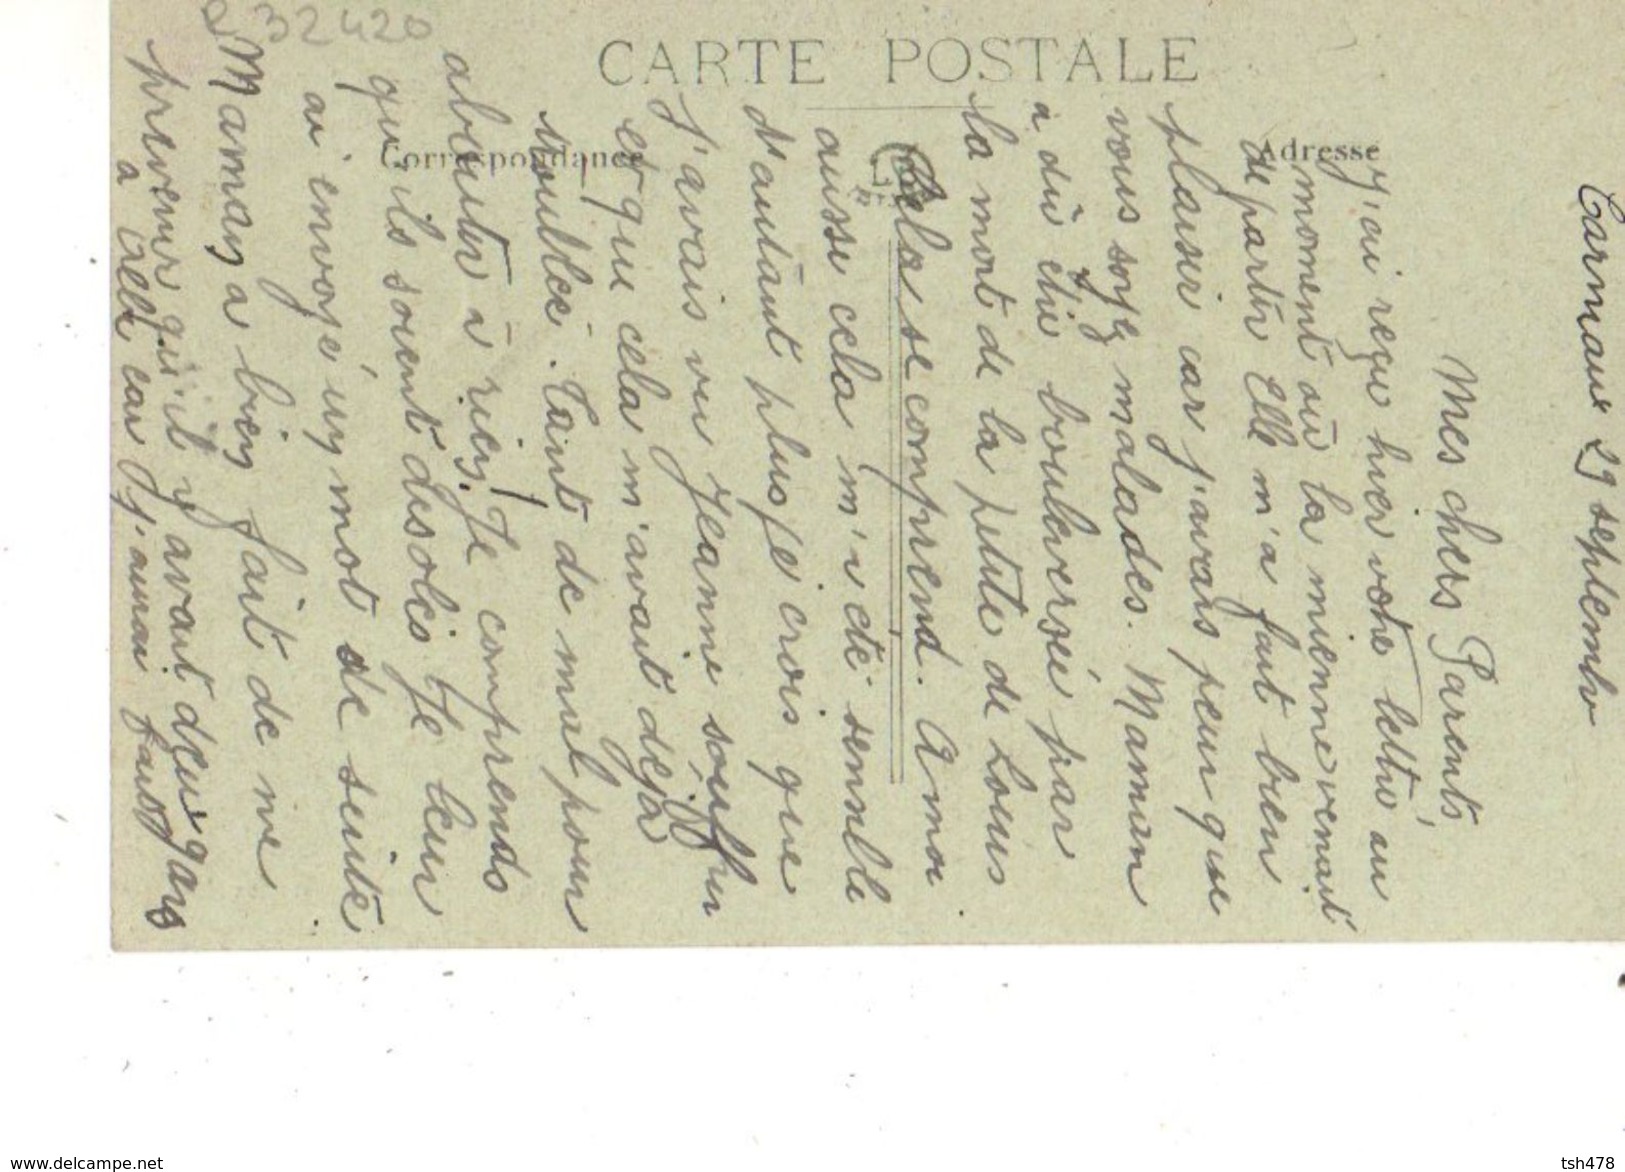 R 32420
CARTE POSTALE
Correspondance
Adresse
Carmaux 29 septembre
Mes chers Parents,
J'ai reçu hier votre lettre au
moment où la mienne venait
de partir Elle m'a fait bien
plaisir car j'avais peur que
vous soyez malades. Maman
a dû être bouleversée par
la mort de la petite de Louis
Cela se comprend. A moi
aussi cela m'a été sensible
d'autant plus je crois que
J'avais vu Jeanne souffrir
et que cela m'avait déjà
troublée. Tant de mal pour
aboutir à rien. Je comprends
qu'ils soient désolés Je leur
ai envoyé un mot de suite
Maman a bien fait de me
prévenir qu'il y avait deux gars
à Albi car j'aurai
delcampe.net
tsh478